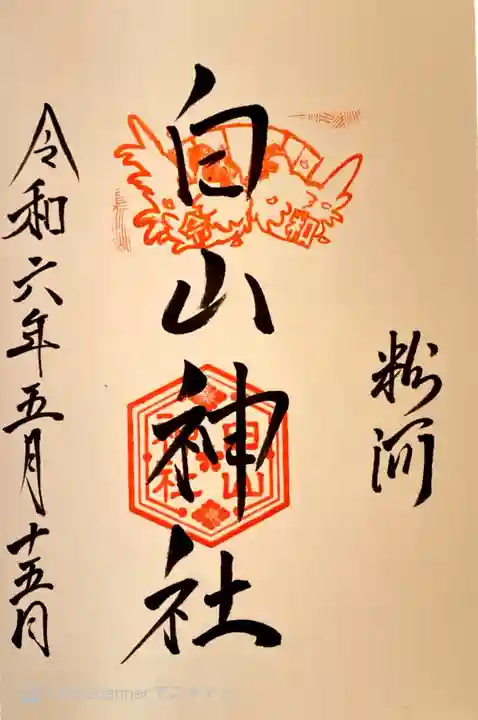 粉河
白山神社
令和
白山神社
令和六年五月十五日